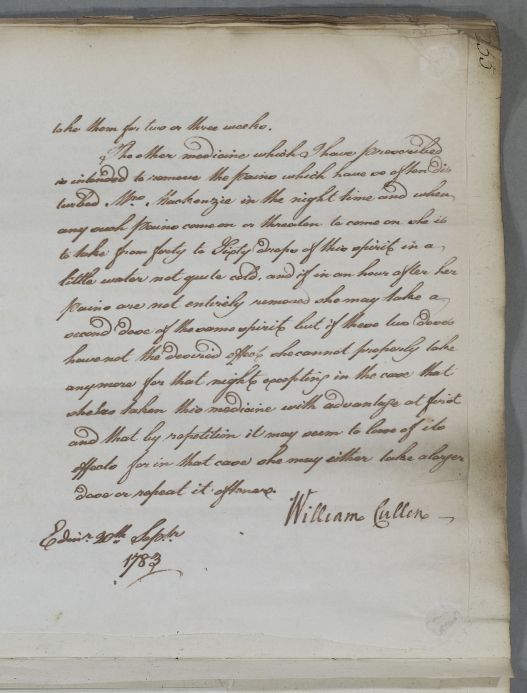 take them for two or three weeks.
The other medicine which I have prescribed
is intended to remove the pains which have so often dis
turbed Mrs. Mackenzie in the night time and when
any such pains come on or threaten to come on she is
to take from forty to Sixty drops of this spirit in a
little water not quite cold, and if in an hour after her
pains are not entirely removed she may take a
second dose of the same spirit but if these two doses
have not the desired effect she cannot properly take
any more for that night excepting in the case that
she has taken this medicine with advantage at first
and that by repetition it may seem to loose of its
effects for in that case she may either take a larger
dose or repeat it oftener.
William Cullen
Edinr. 20th Septr.
1783